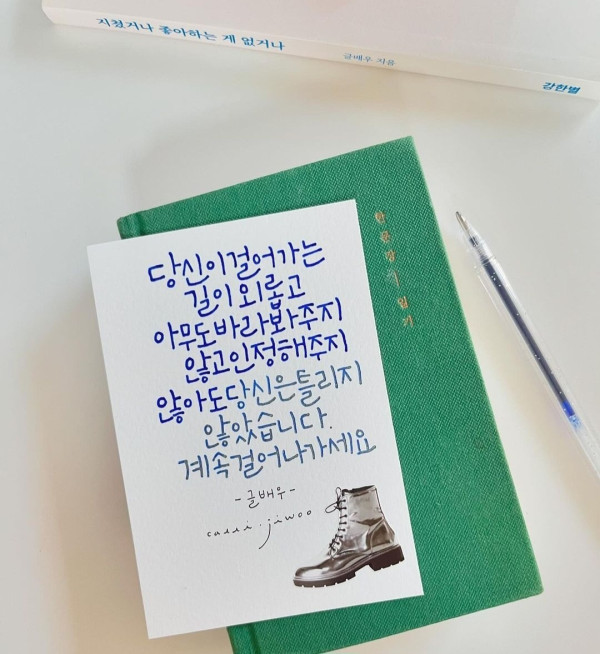 지쳤거나 좋아하는 게 없거나
글배우 지음
강한별
한 문장 일기
당신이걸어가는
길이 외롭고
아무도바라봐주지
않고인정해주지
않아도당신은틀리지
않았습니다.
계속걸어나가세요
-글배우-
calli.jiwoo